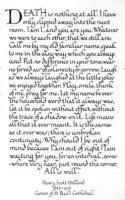 DEATH is nothing at all. I have
only slipped away into the next
room. I am I, and you are you. Whatever
we were to each other, that we still are.
Call me by my old familiar name, speak
to me in the easy way which you always
used. Put no difference in your tone, wear
no forced air of solemnity or sorrow. Laugh
as we always laughed at the little jokes
we enjoyed together. Pray, smile, think
of me, pray for me. Let my name be ever
the household word that it always was,
let it be spoken without effect, without the
trace of a shadow on it. Life means
all that it ever meant. It is the same
as it ever was; there is unbroken
continuity. Why should I be out of
mind because I am out of sight? I am
waiting for you, for an interval, some-
where very near, just around the corner.
All is well.
Henry Scott Holland
1847-1918
Canon of St Paul's Cathedral.